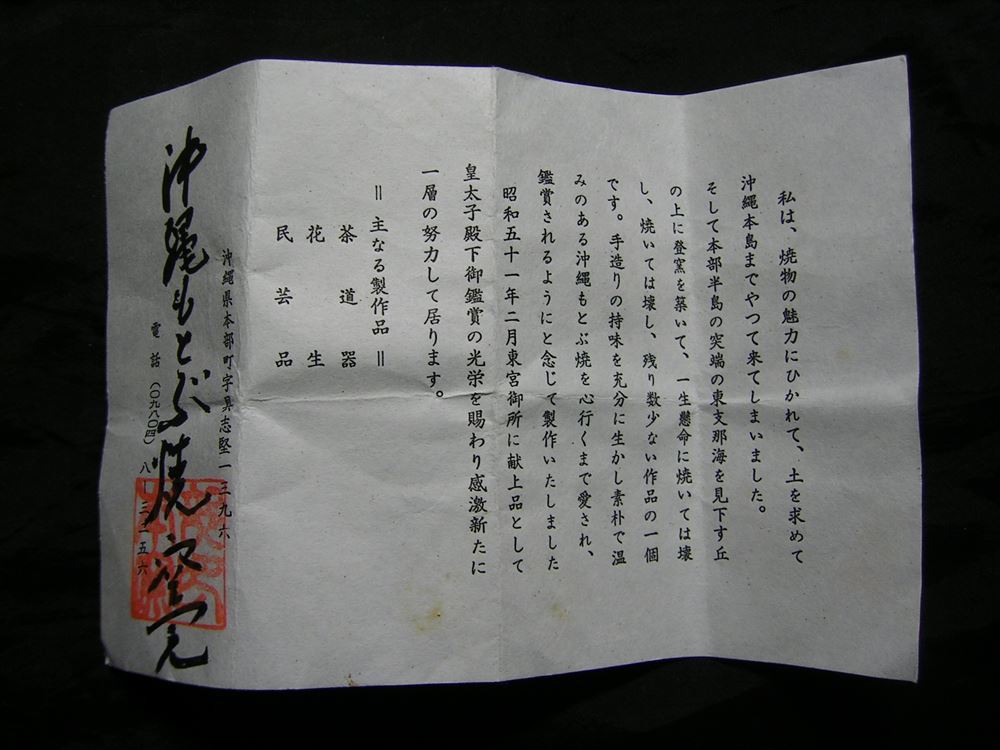 私は、焼物の魅力にひかれて、土を求めて
沖縄本島までやつて来てしまいました。
そして本部半島の突端の東支那海を見下す丘
の上に登窯を築いて、一生懸命に焼いては壊
し、焼いては壊し、残り数少ない作品の一個
です。手造りの持味を充分に生かし素朴で温
みのある沖縄もとぶ焼を心行くまで愛され、
鑑賞されるようにと念じて製作いたしました
昭和五十一年二月東宮御所に献上品として
皇太子殿下御鑑賞の光栄を賜わり感激新たに
一層の努力して居ります。
＝主なる製作品＝
茶道器
花生
民芸品
沖縄県本部町字具志堅一三九六
沖縄もとぶ焼窯
電話（〇九八〇四）八-三一五六